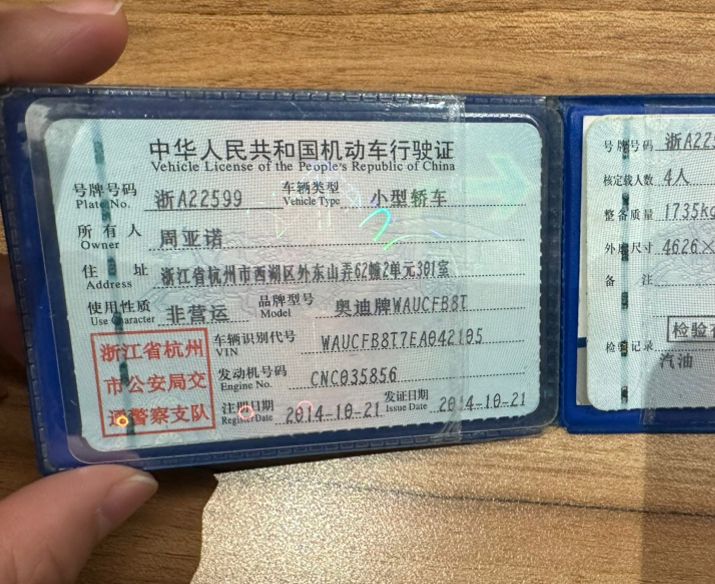 中华人民共和国机动车行驶证
Vehicle License of the People's Republic of China
号牌号码 Plate No. 浙A22599 车辆类型 Vehicle Type 小型轿车
所有人 Owner 周亚诺
住址 Address 浙江省杭州市西湖区外东山弄62幢2单元301室
使用性质 Use Character 非营运 品牌型号 Model 奥迪牌WAUCFB8T
浙江省杭州
市公安局交
通警察支队
车辆识别代号 VIN WAUCFB8T7EA042105
发动机号码 Engine No. CNC035856
注册日期 Register Date 2014-10-21 发证日期 Issue Date 2014-10-21
号牌号码 浙A225
核定载人数 4人
整备质量 1735kg
外廓尺寸 4626×
备注
检验记录
检验
汽油